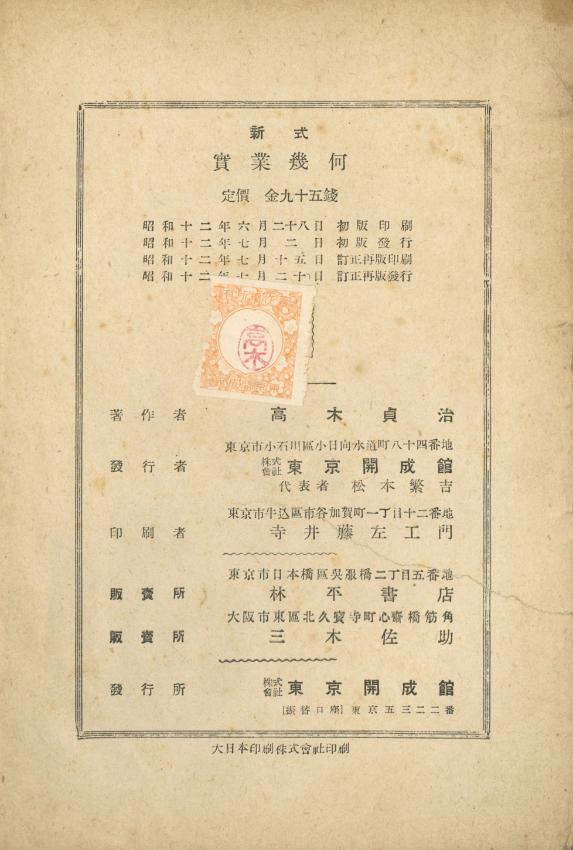 新式
實業幾何
定價 金九十五錢
昭和十二年六月二十八日 初版印刷
昭和十二年七月二日 初版發行
昭和十二年七月十五日 訂正再版印刷
昭和十二年十月二十日 訂正再版發行
高木
著作者 高木貞治
東京市小石川區小日向水道町八十四番地
發行者 株式會社 東京開成館
代表者 松本繁吉
東京市牛込區市谷加賀町一丁目十二番地
印刷者 寺井藤左工門
東京市日本橋區吳服橋二丁目五番地
販賣所 林平書店
大阪市東區北久寶寺町心齋橋筋角
販賣所 三木佐助
發行所 株式會社 東京開成館
[振替口座] 東京五三二二番
大日本印刷株式會社印刷